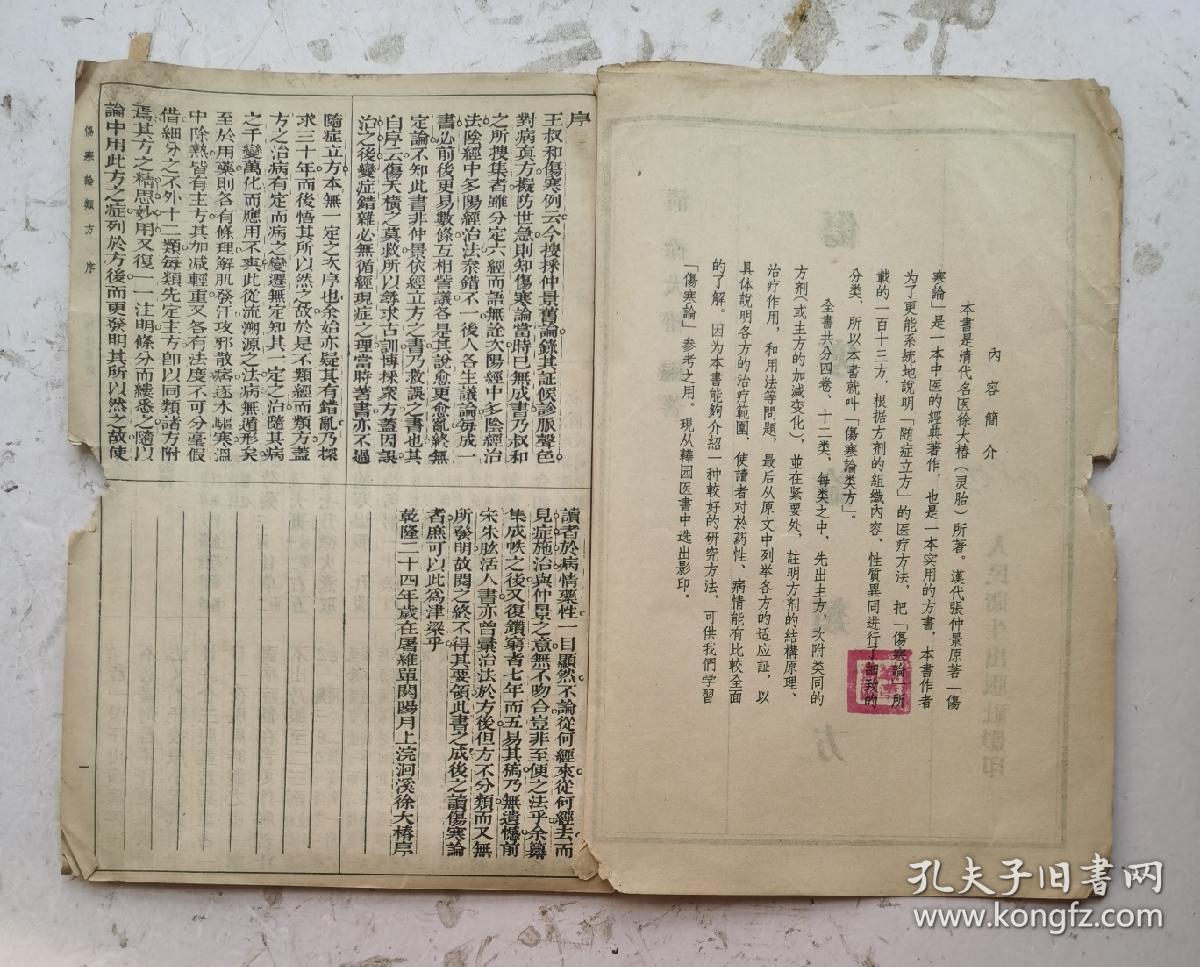 內容簡介
本書是清代名医徐大椿(灵胎)所著。漢代張仲景原著「傷
寒論」是一本中医的經典著作,也是一本实用的方書,本書作者
为了更能系統地說明「随症立方」的医疗方法,把「傷寒論」所
載的一百十三方,根据方剂的組織內容、性質異同进行了細致的
分类,所以本書就叫「傷寒論类方」。
全書共分四卷、十二类,每类之中,先出主方,次附类同的
方剂(或主方的加減变化),並在紧要处,註明方剂的結構原理、
治疗作用,和用法等問題,最后从原文中列举各方的适应証,以
具体說明各方的治疗範圍,使讀者对於葯性、病情能有比較全面
的了解。因为本書能夠介紹一种較好的研究方法,可供我們学習
「傷寒論」参考之用。現从韡园医書中选出影印。
序
王叔和傷寒例云今搜採仲景舊論錄其証候診脈聲色
對病真方擬防世急則知傷寒論當時已無成書乃叔和
之所搜集者雖分定六經而語無詮次陽經中多陰經治
法陰經中多陽經治法叅錯不一後人各生議論每成一
書必前後更易數條互相訾議各是其說愈更愈亂終無
定論不知此書非仲景依經立方之書乃救誤之書也其
自序云傷夭橫之莫救所以尋求古訓博採衆方蓋因誤
治之後變症錯雜必無循經現症之理當時著書亦不過
隨症立方本無一定之次序也余始亦疑其有錯亂乃探
求三十年而後悟其所以然之故於是不類經而類方蓋
方之治病有定而病之變遷無定知其一定之治隨其病
之千變萬化而應用不爽此從流溯源之法病無遁形矣
至於用藥則各有條理解肌發汗攻邪散痞逐水驅寒溫
中除熱皆有主方其加減輕重又各有法度不可分毫假
借細分之不外十二類每類先定主方卽以同類諸方附
焉其方之精思妙用又復一一注明條分而縷悉之隨以
論中用此方之症列於方後而更發明其所以然之故使
讀者於病情藥性一目顯然不論從何經來從何經去而
見症施治與仲景之意無不吻合豈非至便之法乎余纂
集成帙之後又復鑽窮者七年而五易其稿乃無遺憾前
宋朱肱活人書亦曾彙治法於方後但方不分類而又無
所發明故閱之終不得其要領此書之成後之讀傷寒論
者庶可以此爲津梁乎
乾隆二十四年歲在屠維單閼陽月上浣洄溪徐大椿序
傷寒論類方 序
一
孔夫子旧书网
www.kongfz.com